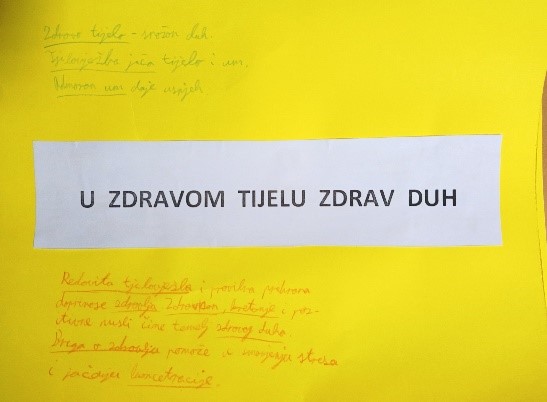 Zdravo tijelo - snažan duh.
Tjelovježba jača tijelo i um.
Odmoran um daje uspjeh
U ZDRAVOM TIJELU ZDRAV DUH
Redovita tjelovježba i pravilna prehrana
doprinose zdravlju. kretanje i poz-
itivne misli čine temelj zdravog duha.
Briga o zdravlju pomaže u smanjenju stresa
i jačanju koncetracije.